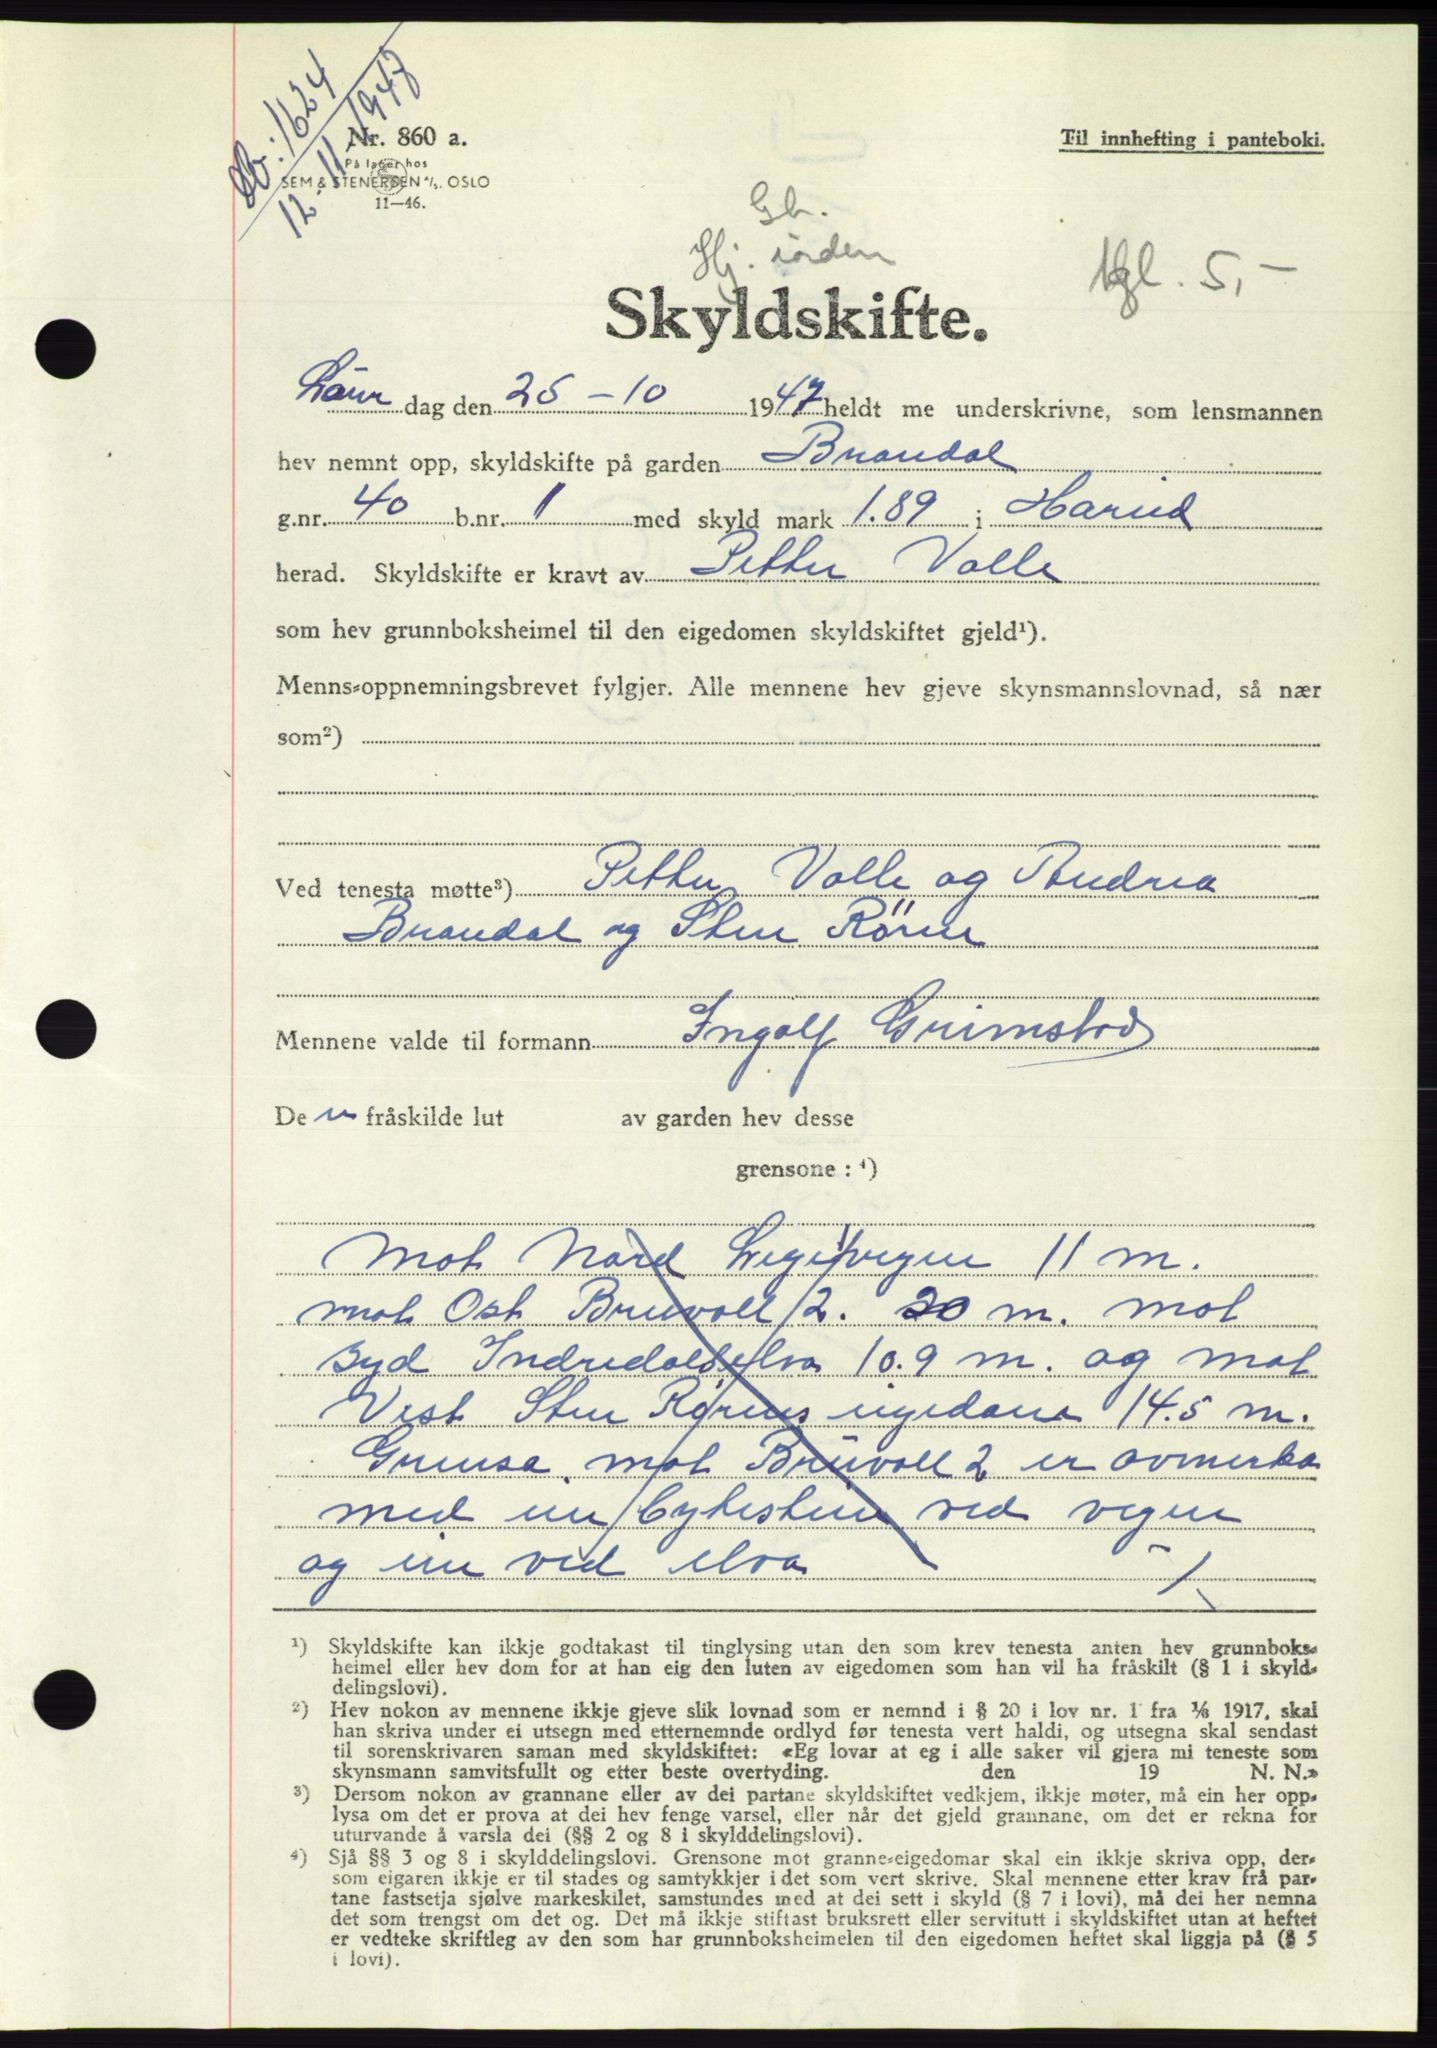 Db: 1624
12.11.1947
Nr. 860 a.
På lager hos
SEM & STENERSEN A/S. OSLO
11—46.
Til innhefting i panteboki.
Gb.
Hj.
5,—
Skyldskifte.
Laur dag den 25 – 10 1947 heldt me underskrivne, som lensmannen
hev nemnt opp, skyldskifte på garden Brandal
g.nr. 40 b.nr. 1 med skyld mark 1.89 i Hareid
herad. Skyldskifte er kravt av Petter Valle
som hev grunnboksheimel til den eigedomen skyldskiftet gjeld¹).
Menns-oppnemningsbrevet fylgjer. Alle mennene hev gjeve skynsmannslovnad, så nær
som²)
Ved tenesta møtte³) Petter Valle og Andrea
Brandal og Sten Rören
Mennene valde til formann Ingolf Grimstad
De n fråskilde lut av garden hev desse
grensone : ⁴)
mot Nord vegen 11 m.
mot Ost Bruvoll 2. 20 m. mot
syd Indredalselva 10.9 m. og mot
Vest Sten Rørens eigedom 14.5 m.
Grensa mot Bruvoll 2 er avmerka
med ein bytestein ved vegen
og ein ved elva
¹) Skyldskifte kan ikkje godtakast til tinglysing utan den som krev tenesta anten hev grunnboks-
heimel eller hev dom for at han eig den luten av eigedomen som han vil ha fråskilt (§ 1 i skyld-
delingslovi).
²) Hev nokon av mennene ikkje gjeve slik lovnad som er nemnd i § 20 i lov nr. 1 fra ⅙ 1917, skal
han skriva under ei utsegn med etternemnde ordlyd før tenesta vert haldi, og utsegna skal sendast
til sorenskrivaren saman med skyldskiftet: «Eg lovar at eg i alle saker vil gjera mi teneste som
skynsmann samvitsfullt og etter beste overtyding. den 19 N. N.»
³) Dersom nokon av grannane eller av dei partane skyldskiftet vedkjem, ikkje møter, må ein her opp-
lysa om det er prova at dei hev fenge varsel, eller når det gjeld grannane, om det er rekna for
uturvande å varsla dei (§§ 2 og 8 i skylddelingslovi).
⁴) Sjå §§ 3 og 8 i skylddelingslovi. Grensone mot granne-eigedomar skal ein ikkje skriva opp, der-
som eigaren ikkje er til stades og samtykkjer i det som vert skrive. Skal mennene etter krav frå par-
tane fastsetja sjølve markeskilet, samstundes med at dei sett i skyld (§ 7 i lovi), må dei her nemna
det som trengst om det og. Det må ikkje stiftast bruksrett eller servitutt i skyldskiftet utan at heftet
er vedteke skriftleg av den som har grunnboksheimelen til den eigedomen heftet skal liggja på (§ 5
i lovi).